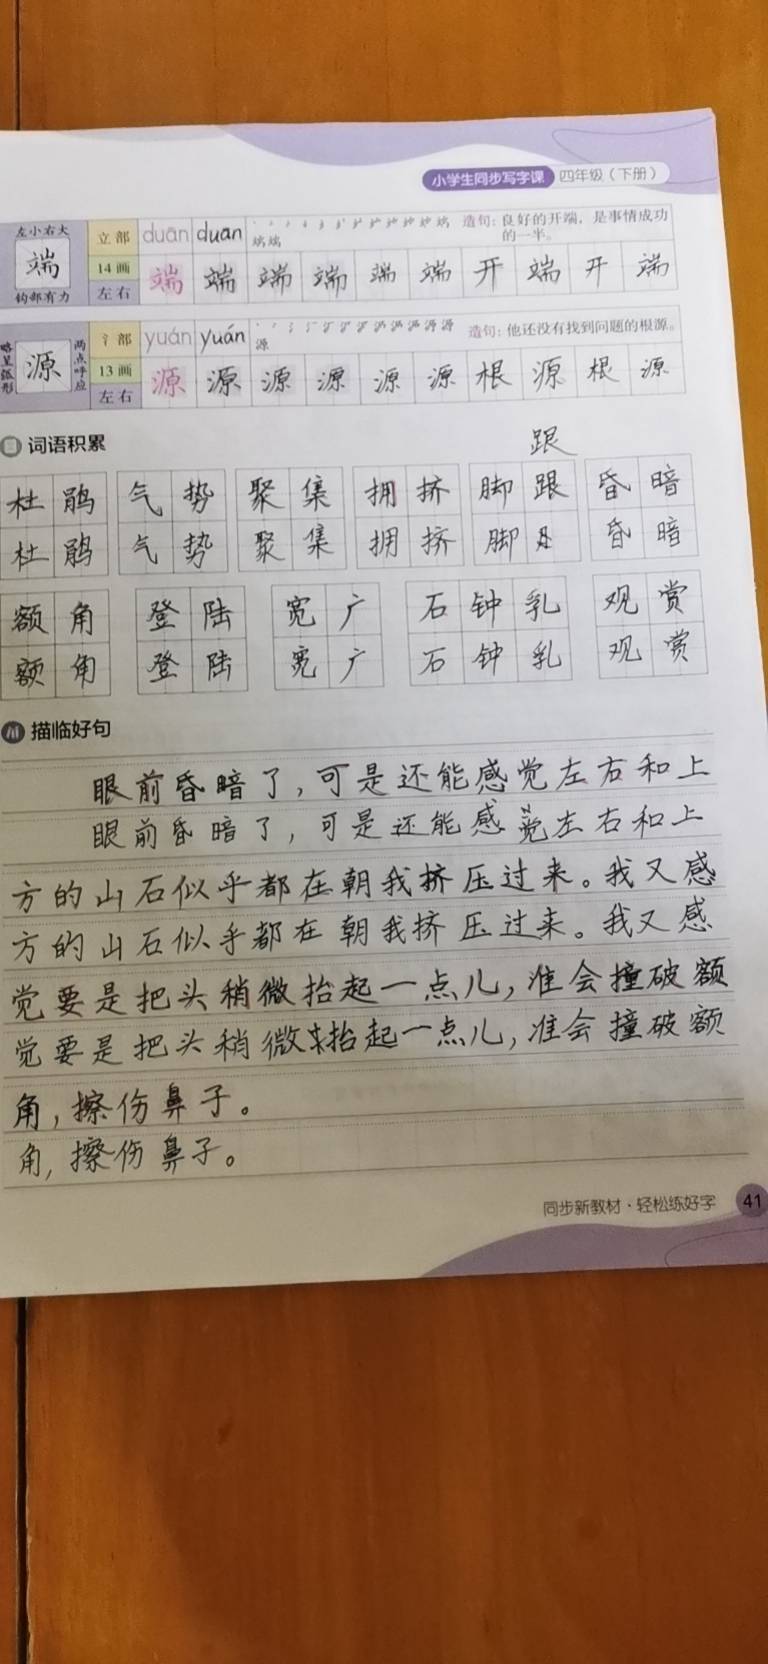 小学生同步写字课 四年级（下册）
左小右大
端
钩部有力
立部
14画
左右
duān duan
端端
造句：良好的开端，是事情成功的一半。
端 端 端 端 端 端 开 端 开 端
略呈弧形
源
两点呼应
氵部
13画
左右
yuán yuán
源
造句：他还没有找到问题的根源。
源 源 源 源 源 源 根 源 根 源
词语积累
跟
杜鹃 气势 聚集 拥挤 脚跟 昏暗
杜鹃 气势 聚集 拥挤 脚 昏暗
额角 登陆 宽广 石钟乳 观赏
额角 登陆 宽广 石钟乳 观赏
描临好句
眼前昏暗了，可是还能感觉左右和上
眼前昏暗了，可是还能感觉左右和上
方的山石似乎都在朝我挤压过来。我又感
方的山石似乎都在朝我挤压过来。我又感
觉要是把头稍微抬起一点儿，准会撞破额
觉要是把头稍微抬起一点儿，准会撞破额
角，擦伤鼻子。
角，擦伤鼻子。
同步新教材·轻松练好字 41